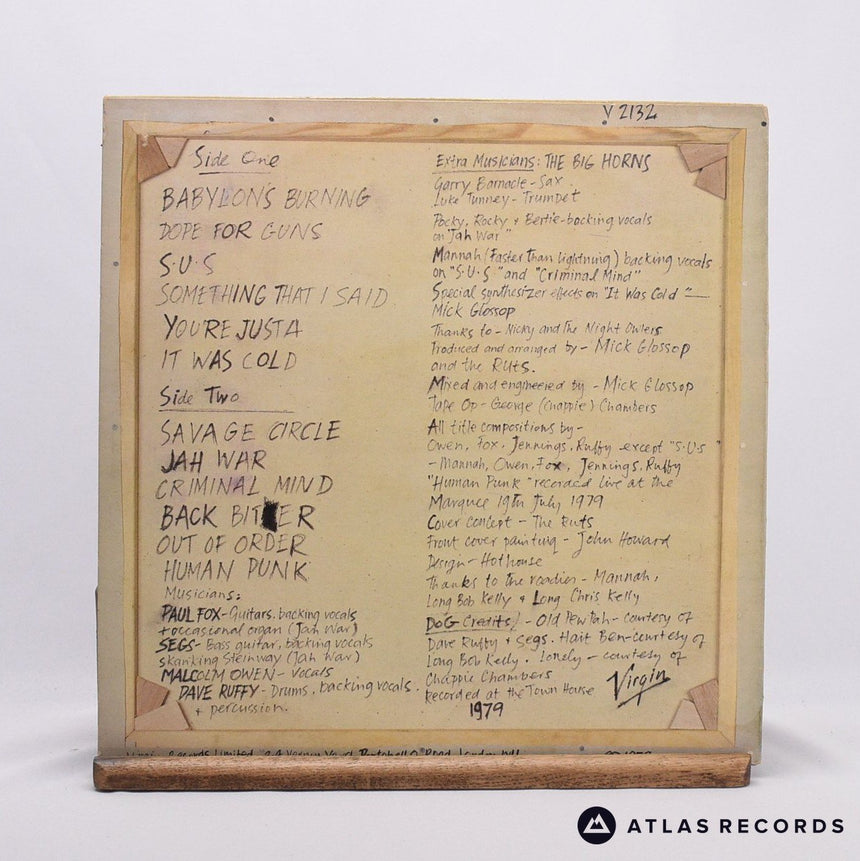 V 2132
Side One
BABYLON'S BURNING
DOPE FOR GUNS
S·U·S
SOMETHING THAT I SAID
YOU'RE JUST A
IT WAS COLD
Side Two
SAVAGE CIRCLE
JAH WAR
CRIMINAL MIND
BACK BITER
OUT OF ORDER
HUMAN PUNK
Musicians:
PAUL FOX - Guitars, backing vocals
+ occasional organ (Jah War)
SEGS - Bass guitar, backing vocals
skanking Steinway (Jah War)
MALCOLM OWEN - Vocals
DAVE RUFFY - Drums, backing vocals.
+ percussion.
Extra Musicians: THE BIG HORNS
Garry Barnacle - Sax
Luke Tunney - Trumpet
Pocky, Rocky + Bertie - backing vocals
on "Jah War"
Mannah (Faster than lightning) backing vocals
on "S·U·S" and "Criminal Mind"
Special synthesizer effects on "It Was Cold" -
Mick Glossop
Thanks to - Nicky and the Night Owlers
Produced and arranged by - Mick Glossop
and the Ruts.
Mixed and engineered by - Mick Glossop
Tape Op - George (Chappie) Chambers
All title compositions by -
Owen, Fox, Jennings, Ruffy except "S·U·S"
- Mannah, Owen, Fox, Jennings, Ruffy
"Human Punk" recorded live at the
Marquee 19th July 1979
Cover concept - The Ruts
Front cover painting - John Howard
Design - Hothouse
Thanks to the roadies - Mannah,
Long Bob Kelly & Long Chris Kelly
DoG Credits! - Old Pew Pah - courtesy of
Dave Ruffy + Segs. Hait Ben - courtesy of
Long Bob Kelly. Lonely - courtesy of
Chappie Chambers
Recorded at the Town House
1979
Virgin
Records Limited, 2-4 Vernon Yard, Portobello Road, London W11
ATLAS RECORDS